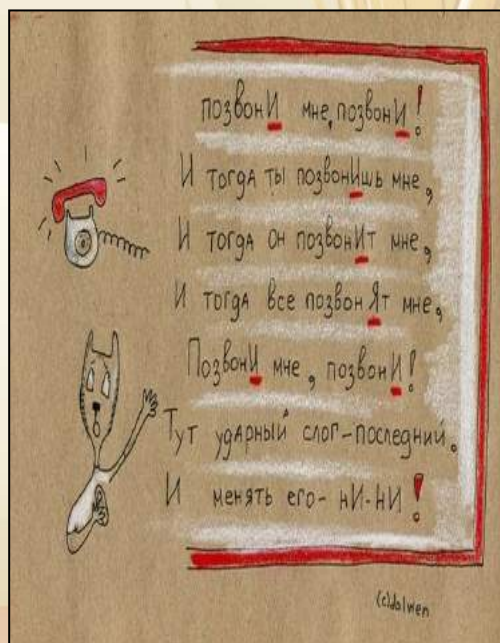 позвонИ мне, позвонИ!
И тогда ты позвонИшь мне,
И тогда он позвонИт мне,
И тогда все позвонЯт мне,
ПозвонИ мне, позвонИ!
Тут ударный слог-последний.
И менять его- нИ-нИ!
(c)dalwen